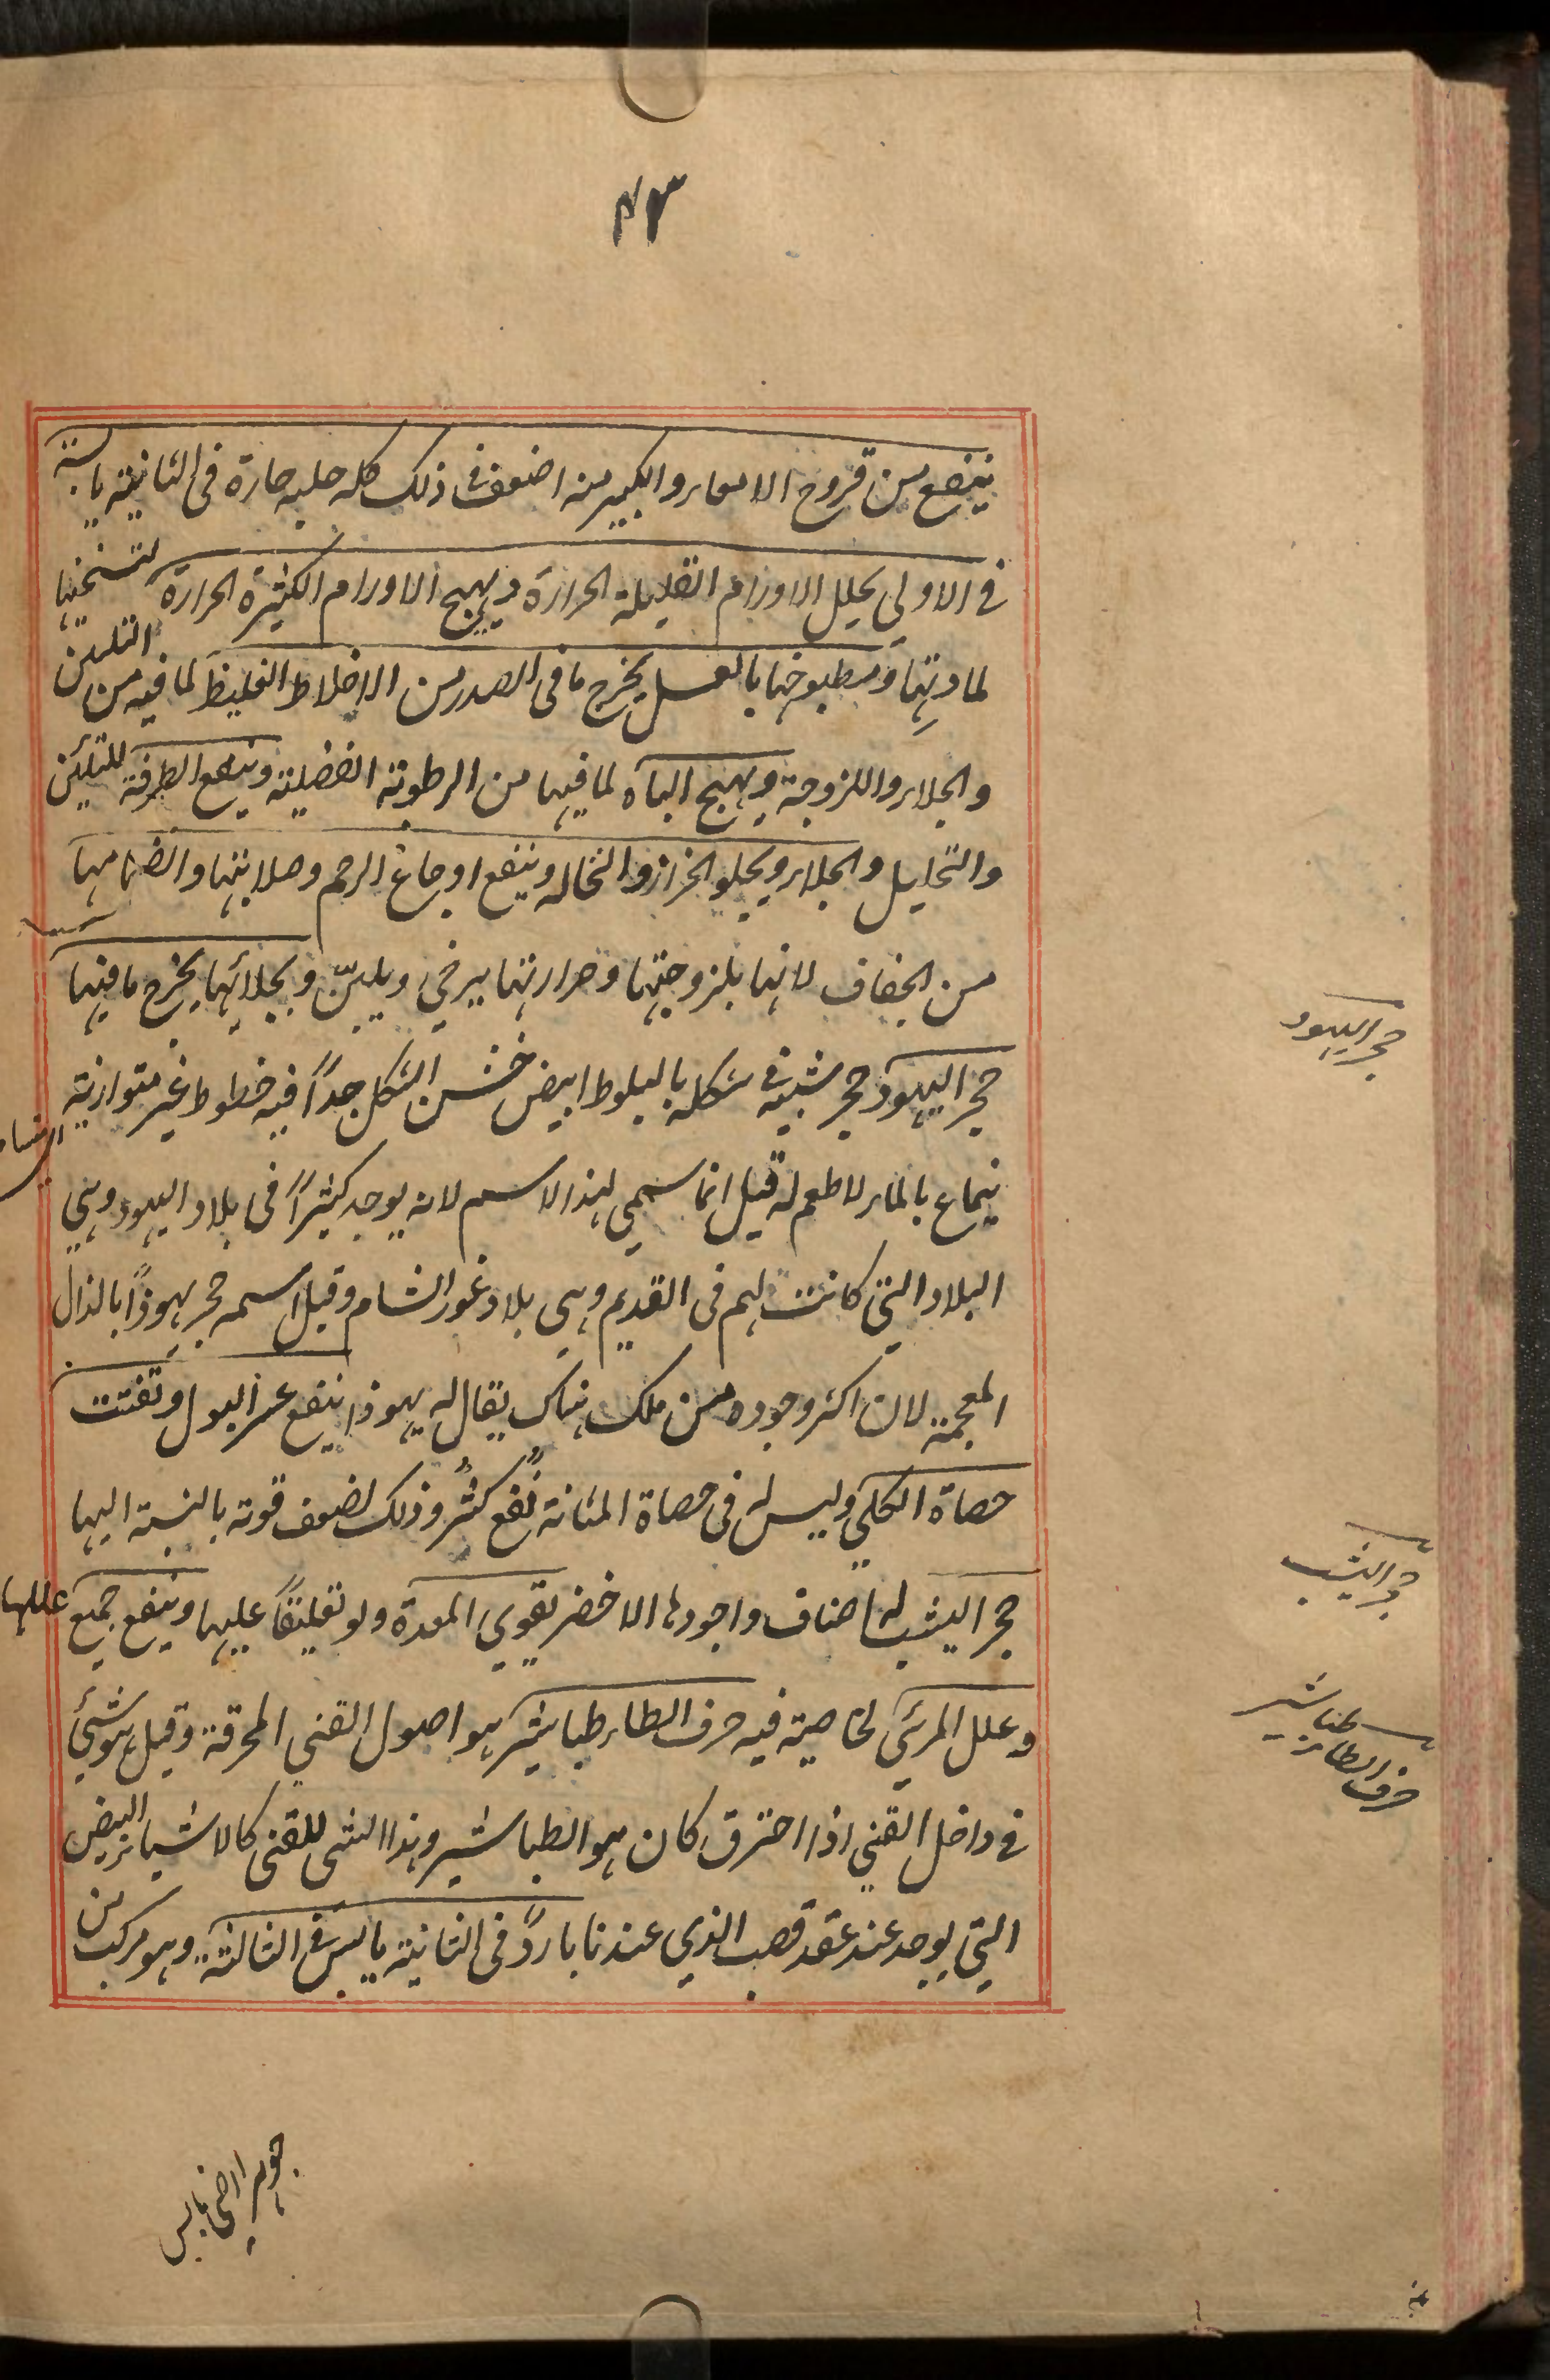 ٤٣
ينفع من قروح الامعاء والكبير منه اضعف فى ذلك كله حلبه حارة فى الثانية يابسة
فى الاولى يحلل الاورام القليلة الحرارة ويهيج الاورام الكثيرة الحرارة لتسخنها
لمادتها ومطبوخها بالعسل يخرج ما فى الصدر من الاخلاط الغليظ لما فيه من التليين
والجلاء واللزوجة ويهيج الباه لما فيها من الرطوبة الفضلية وينفع الطرفة للتليين
والتحليل والجلاء ويجلو الخزاز والنخاله وينفع اوجاع الرحم وصلابتها وانضمامها
من الجفاف لانها بلزوجتها وحرارتها يرخي ويلين وبجلائها يخرج ما فيها
حجر اليهود حجر شبيه فى شكله بالبلوط ابيض خشن الشكل جداً فيه خطوط غير متوازنة
ينماع بالماء لا طعم له قيل انما سمي لهذا الاسم لانه يوجد كثيراً فى بلاد اليهود وهي
البلاد التي كانت لهم فى القديم وهي بلاد غور الشام وقيل اسمه حجر يهوذاً بالذال
المعجمة لان اكثر وجوده من ملك هناك يقال له يهوذا ينفع عسر البول وتفتت
حصاة الكلي وليس له فى حصاة المثانة نفع كثر وذلك لضعف قوته بالنسبة اليها
حجر اليشب له اصناف واجودها الاخضر يقوي المعدة ولو تعليقاً عليها وينفع جميع عللها
وعلل المرئي لخاصية فيه حرف الطاء طباشير هو اصول القني المحرقة وقيل هو شيئ
فى داخل القني اذا احترق كان هو الطباشير وهذا الشى للقنى كالاشياء البيض
التي يوجد عند عقد قصب الذي عندنا بارد فى الثانية يابس فى الثالثة وهو مركب من
جوهر ارضى يابس
حجر اليهود
حجر اليشب
طباشير
حرف الطاء